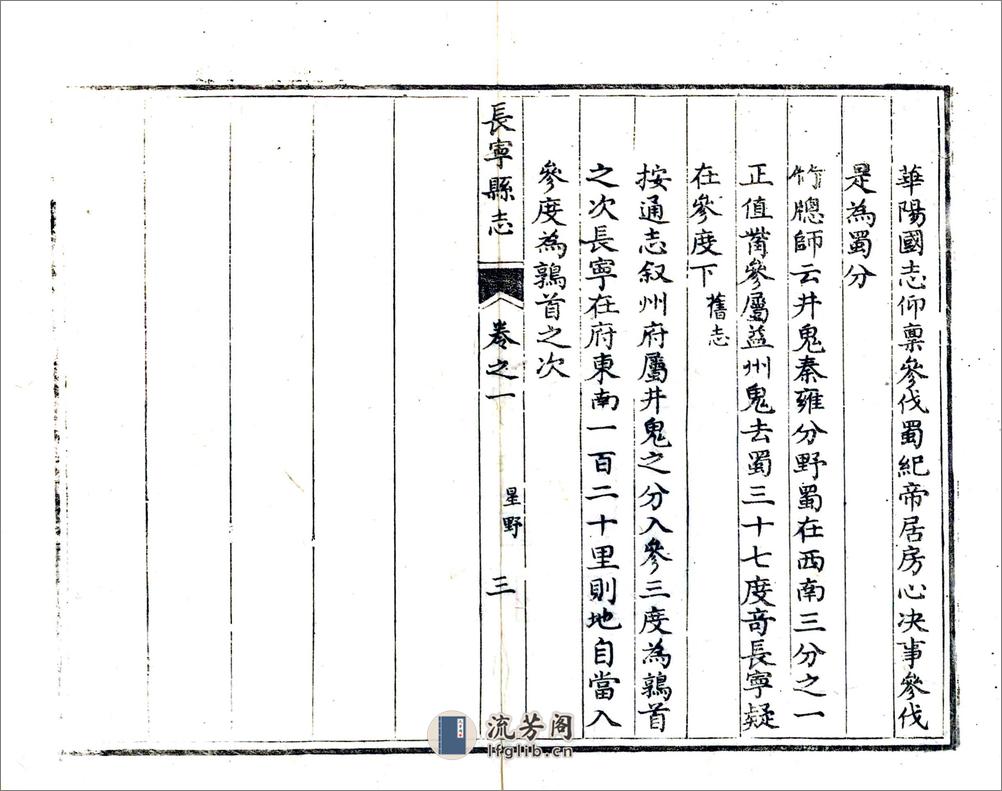 華陽國志仰禀參伐蜀紀帝居房心决事參伐
是為蜀分
竹牕師云井鬼秦雍分野蜀在西南三分之一
正值觜參屬益州鬼去蜀三十七度竒長寧疑
在參度下 舊志
按通志叙州府屬井鬼之分入參三度為鶉首
之次長寧在府東南一百二十里則地自當入
參度為鶉首之次
長寧縣志 卷之一 星野 三
流芳阁
lfglib.cn